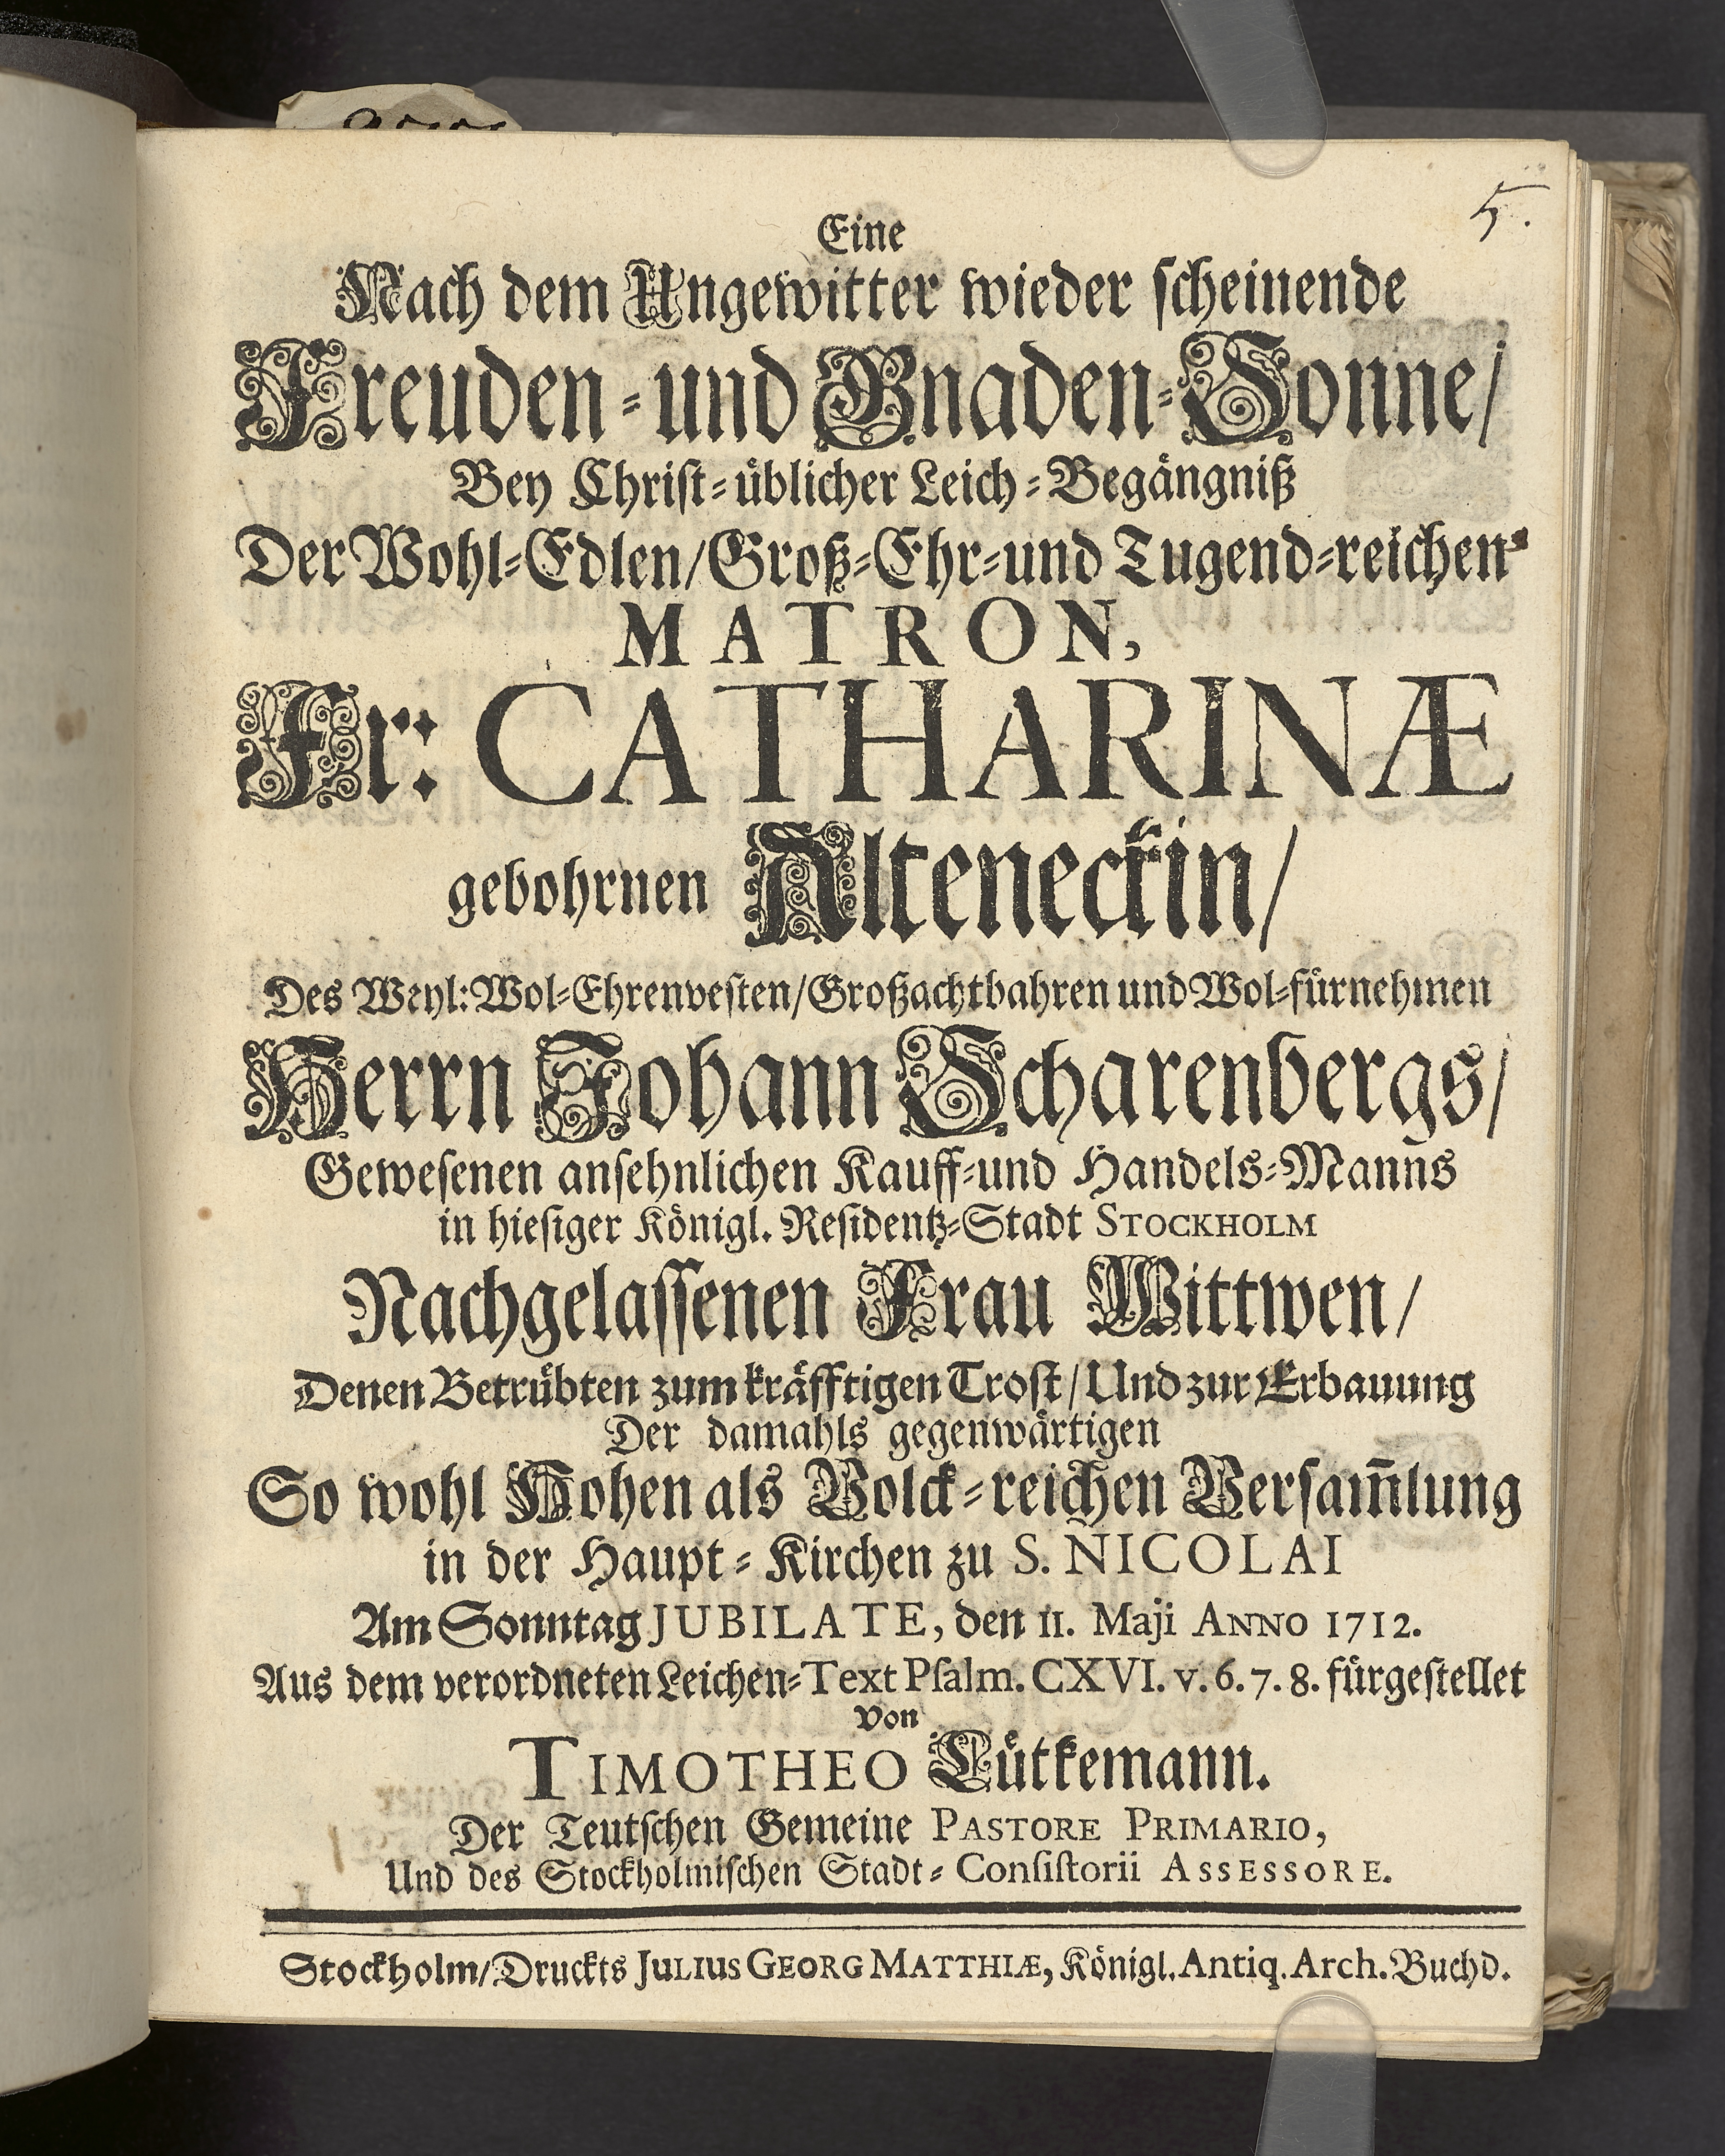 5.
Eine
Nach dem Ungewitter wieder scheinende
Freuden-und Gnaden-Sonne/
Bey Christ-üblicher Leich-Begängniß
Der Wohl-Edlen/Groß-Ehr-und Tugend-reichen
MATRON,
Fr: CATHARINÆ
gebohrnen Alteneckin/
Des Weyl: Wol-Ehrenvesten/Großachtbahren und Wol-fürnehmen
Herrn Johann Scharenbergs/
Gewesenen ansehnlichen Kauff-und Handels-Manns
in hiesiger Königl. Residentz-Stadt STOCKHOLM
Nachgelassenen Frau Wittwen/
Denen Betrübten zum kräfftigen Trost/Und zur Erbauung
Der damahls gegenwärtigen
So wohl Hohen als Volck-reichen Versam̃lung
in der Haupt-Kirchen zu S. NICOLAI
Am Sonntag JUBILATE, den 11. Maji ANNO 1712.
Aus dem verordneten Leichen-Text Psalm. CXVI. v. 6. 7. 8. fürgestellet
von
TIMOTHEO Lütkemann.
Der Teutschen Gemeine PASTORE PRIMARIO,
Und des Stockholmischen Stadt-Consistorii ASSESSORE.
Stockholm/Druckts JULIUS GEORG MATTHIÆ, Königl. Antiq. Arch. Buchd.